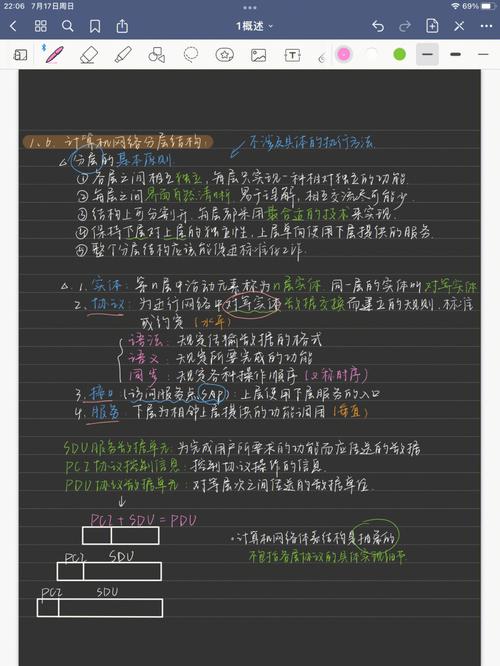 22:06 7月17日周日
69%
1概述
1.6. 计算机网络分层结构:
不涉及具体的执行方法
分层的基本原则
① 各层之间相互独立,每层只实现一种相对独立的功能
② 每层之间界面自然清晰,易于理解,相互交流尽可能少
③ 结构上可分割开.每层都采用最合适的技术来实现.
④ 保持下层对上层的独立性,上层单向使用下层提供的服务.
⑤ 整个分层结构应该能促进标准化工作.
1. 实体: 第n层中活动元素称为n层实体. 同一层的实体叫对等实体
2. 协议: 为进行网络中对等实体数据交换而建立的规则、标准
或约定 (水平)
语法: 规定传输数据的格式
语义: 规定所要完成的功能
同步: 规定各种操作顺序 (又称时序)
3. 接口 (访问服务点SAP): 上层使用下层服务的入口
4. 服务: 下层为相邻上层提供的功能调用 (垂直)
SDU服务数据单元: 为完成用户所要求的功能而应传送的数据
PCI协议控制信息: 控制协议操作的信息.
PDU协议数据单元: 对等层次之间传送的数据单位.
PCI + SDU = PDU
·计算机网络体系结构是抽象的
PCI SDU
不包括各层协议的具体实现细节
PCI SDU